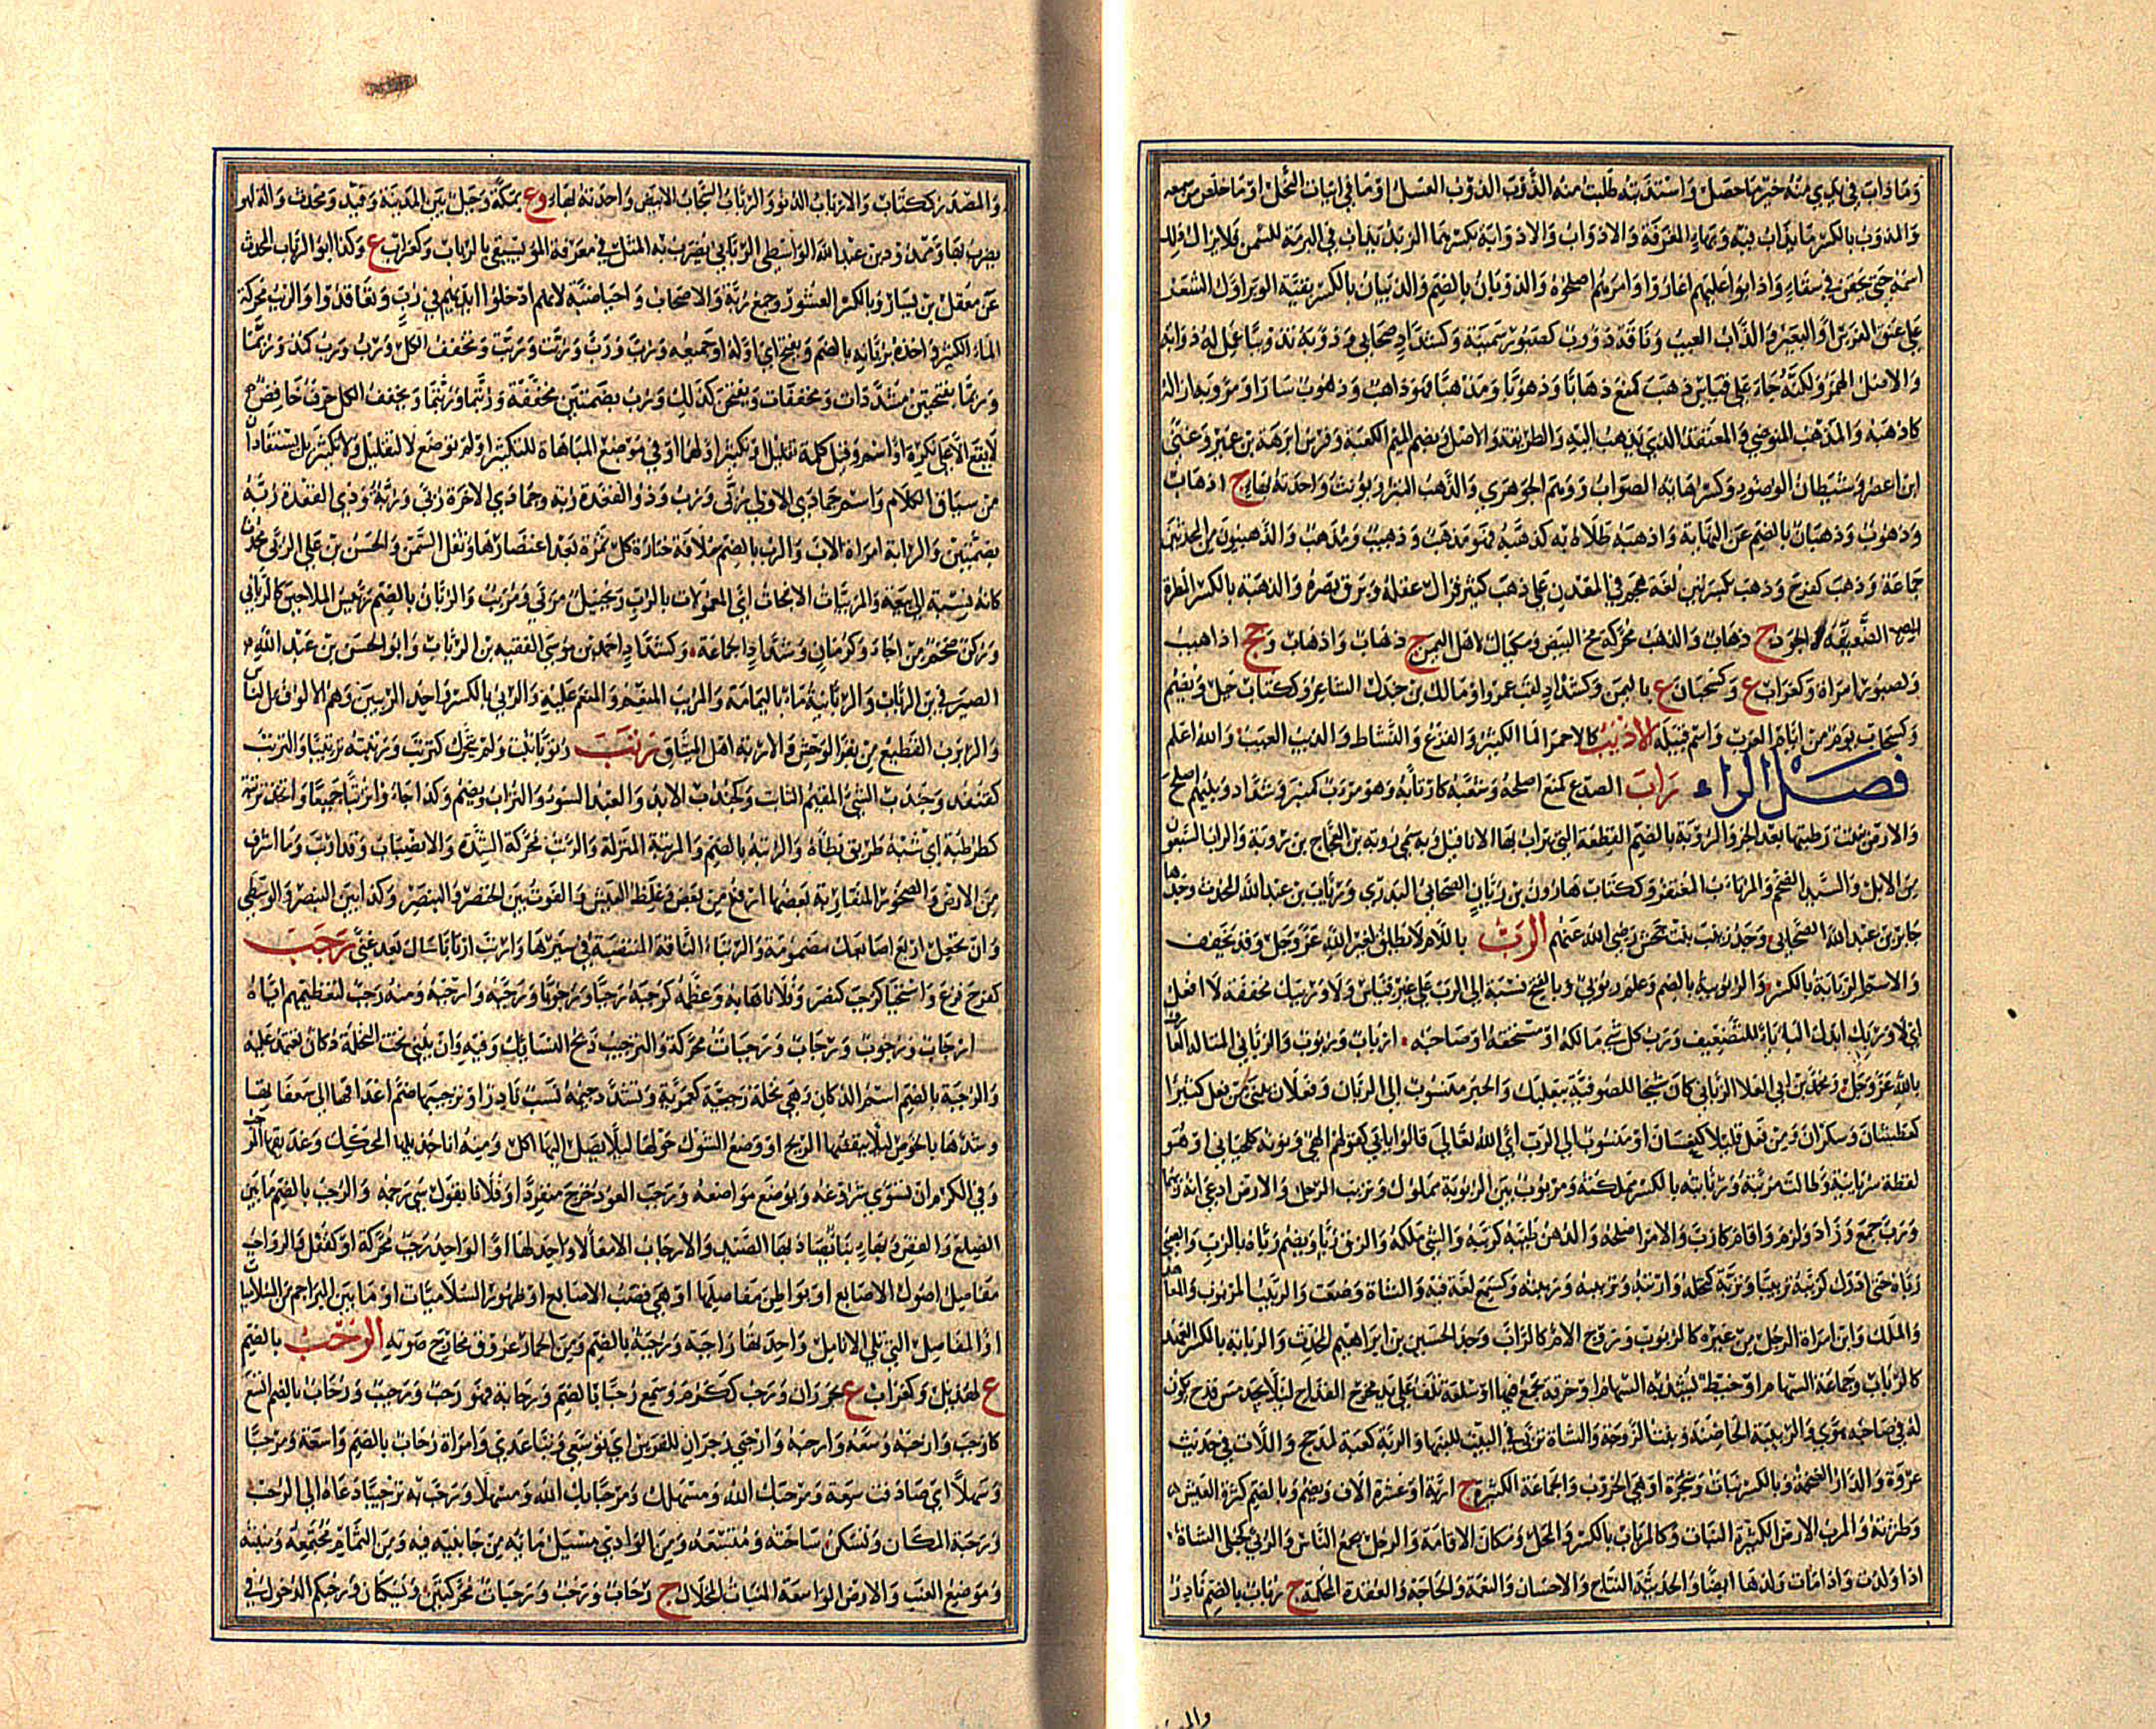 وَمَا ذابَ في يَدِي منْهُ خَيرٌ ما حَصَلَ وَاسْتَذَبْتُه طَلَبتُ منه الذَّوْبَ الذَّوْبُ العَسَلُ اوْ مَا في ابيات النَّحْل اوْ مَا خلَصَ من شمعه
وَالمِذوَبُ بالكسْرِ مَا يذابُ فيه وَبهَاءٍ المِغرَفَة وَالاذوَابُ وَالاذوَابَة بكسْرهمَا الزبدُ يذابُ في البرمَة للسَّمن فلا يزالُ ذلك
اسْمَهُ حتى يحقَنَ في سقاءٍ وَاذابوُا عليهم اغَارُوا وَامرَهُم اصلحُوهُ وَالذوْبانُ بالضم وَالذيبَان بالكسْر بقيَّة الوَبر اوْ الشعَر
عَلى عُنق الفرَس اوْ البَعير وَالذابُ العيب وَناقة ذؤوب كصَبُور سَمينَة وَكشدادٍ صحَابي وَذوَّبَهُ تذويبًا عَمل لهُ ذؤابَة
وَالاصْل الهَمز وَلكنَّهُ جَاءَ عَلى قياس ذهَبَ كمنَعَ ذهَابًا وَذهُوبًا وَمَذهبًا فهوَ ذاهِبٌ وَذهُوبٌ سَارَ اوْ مَرَّ وَبه ازاله
كاذهَبَهُ وَالمَذهَبُ المتوضَّى وَالمعتقد الذي يذهبُ اليه وَالطريقة وَالاصْل وَبضم الميم الكعبَة وَفرس ابرهَة بن عُمير وَغنَّى
ابن اعصر وَشيطانُ الوضوء وَكسرُ هائه الصوَابُ وَوَهمَ الجَوهَري وَالذّهَبُ التبر وَيؤنثُ وَاحدَتهُ بهَاءٍ ج اذهَابٌ
وَذهُوبٌ وَذهبَانٌ بالضم عَن النهَاية وَاذهبَهُ طلاهُ به كذهَّبهُ فهوَ مُذهَبٌ وَذهيبٌ وَمُذهَّبٌ وَالذّهبيُّونَ من المحدثين
جَمَاعَة وَذهبَ كفرحَ وَذهبَ بكسْرتين لغَة هجَمَ في المعدن عَلى ذهَبٍ كثير فزالَ عَقله وَبرقَ بَصَرُه وَالذهبَة بالكسْر المطرَة
الضعيفَة اوْ الجَود ج ذهَابٌ وَالذهَبُ محرَّكة مُحُّ البَيض وَمكيَالٌ لاهْل اليمَن ج ذهَابٌ وَاذهَابٌ وَجج اذاهيبُ
وَكصَبُور امْرَأة وَكغُرَاب ع وَكسحبَان ع باليمَن وَكشدَّادٍ لقبُ عمرو اوْ مَالك بن جندل الشاعر وَككتَابٍ جبَل وَيُضَم
وَكسحَاب يوم من ايَّام العرَب وَاسْم قبيلة الاذيَبُ كالاحمَر المَاءُ الكثير وَالفزَع وَالنَّشاط وَالذيبُ العيبُ وَالله اعلم
فصل الراء رَأبَ الصدعَ كمنعَ اصْلحَهُ وَشعَبَهُ كارْتأبَهُ وَهوَ مِرْأبٌ كمنبر وَشدَّاد وَبينَهم اصلحَ
وَالارضُ نبتَتْ رَطبتُها بعد الجَزّ وَالرُّؤبَة بالضم القطعَة التي يرأبُ بهَا الانا قيل وَبه سُمّي رُؤبَة بن العجاج بن رؤبَة وَالرأب السَّبعُونَ
مِن الابل وَالسَّيد الضخم وَالمرتاب المغتفر وَككتَاب هَارُون بن رئاب الصحَابي البَدري وَرئاب بن عبدالله المحدث وَجد
جَابر بن عَبد الله الصحَابي وَجَد زينب بنت جحش رضي الله عنهم الرَّبُّ باللام لا يطلق لغير الله عَزَّ وَجَل وَقد يخفف
وَالاسْم الرّبَابَة بالكسْر وَالربوبيَّة بالضم وَعلم رَبوبيّ وَبالفتح نسْبَة إلى الرَّب عَلى غير قياس وَلا وَرَبيكَ مخففَة لا افعَل
ايْ لا وَرَبّكَ ابدلَ البَاء يَاءً للتَّضعيف وَرَبُّ كل شيء مَالكهُ اوْ مُستحقهُ اوْ صَاحبُه ج اربَابٌ وَربُوبٌ وَالرّبَّاني المتاله العَارف
باللهِ عَزَّ وَجَل وَمحمد بن ابي العلا الرَّبَّاني كانَ شيخًا للصّوفيّة ببعلبك وَالحبر منسوبٌ الى الرَّبَّان وَفعلان يبنى من فعل كثيرًا
كعطشان وَسكران وَمن فعَل قليلا كنعسَان اوْ منسُوبٌ الى الرب اي الله تعَالى قالوا رَبَّاني كقولهم الهيّ وَنونه كلحيَاني اوْ هُوَ
لفظة سريَانيَّة وَطالت مَرَبَّتهُ وَربَابتهُ بالكسْر مملكتهُ وَمربُوب بيّن الربُوبَة مملوك وَتربَّبَ الرجل وَالارض ادعى انه ربها
وَرَبَّ جَمعَ وَزادَ وَلزمَ وَاقامَ كارَبَّ وَالامْر اصلحهُ وَالدهن طيَّبهُ كربَّبهُ وَالشيَ ملكه وَالزق رُبًّا وَيضم رَبَّاهُ بالرُّب وَالصبي
رَبَّاهُ حتى ادرَك كربَّبهُ تربيبًا وَتربَّة كتحلّه وَارتبّهُ وَتربَّبهُ وَربَيتهُ وَكسَمعَ لغة فيه وَالشاة وَضعَت وَالربيبُ المربوب وَالمعَاهد
وَالمَلك وَابن امْرَأة الرجُل من غيره كالربُوب وَزوج الامّ كالرَّابّ وَجَد الحسَين بن ابرَاهيم المحدث وَالربَابَة بالكسْر العَهد
كالربَاب وَجمَاعَة السّهَام اوْ خيط تشدّ به السّهَام اوْ خرقَة تجمع فيها اوْ سلفَة تلف عَلى يد مخرج القدَاح ليلا يجد مَس قدح يكُون
لهُ في صَاحبه هَوًى وَالربيبَة الحَاضنَة وَبنت الزَّوجَة وَالشاة تربَّى في البَيت للبنهَا وَالرَّبة كعبَة لمذحج وَاللَّات في حَديث
عُروَة وَالدار الضخمَة وَبالكسْر نبَاتٌ وَشجرَة اوْ هي الخرّوب وَالجمَاعَة الكثيرة ج اربَّة اوْ عشرَة الاف وَيضم وَبالضم كثرة العَيش
وَطثرتهُ وَالمرَبّ الارض الكثيرَة النبات كالمربَاب بالكسْر وَالمحَل وَمكان الاقامَة وَالرجل يجمَع النّاس وَالرُّبَّى كحبلى الشاة
اذا وَلدَت وَاذا مَات وَلدهَا ايضًا وَالحديثة النتاج وَالاحسَان وَالنعمَة وَالحَاجَة وَالعقدة المحكمة ج رُبَابٌ بالضم نادر
وَالمصْدر ككتاب وَالاربَابُ الدُّنو وَالرَّبَابُ السَّحَابُ الابيَض وَاحدَته بهَاءٍ وع بمَكَّة وَجبَل بَين المدينَة وَفيد وَمحدث وَالة لهو
يضرب بهَا وَممدُود بن عبد الله الوَاسطي الربَابي يضرَبُ به المثل في معرفة الموسيقى بالربَاب وَكغراب ع وَكذا ابو الربَاب المحدث
عَن معقل بن يَسَار وَبالكسْر العشُور وَجمع رُبَّة وَالاصحَاب وَاحيَاء ضبَّة لانهم ادخلوا ايدَيهم في رُبٍّ وَتعَاقدُوا وَالربب محركة
المَاءُ الكثير وَاخذهُ برُبَّانه بالضم وَيفتح اي اوله اوْ جميعه وَرُبَّ وَرَبَّ وَرُبَّتَ وَرَبَّتَ وَتخفف الكل وَرُبْ وَرُبُ كمُذ وَرُبَّمَا
وَرُبَّتما بضمتين مشدَّدَات وَمخففات وَبفتحهن كذلك وَرُبُ بضمَّتين مخففة حَرف خَافض
لا يقع الا على نكرَة اوْ اسْم وَقيل كلمَة تقليل اوْ تكثير اوْ لهمَا اوْ في مَوضع المبَاهَاة للتكثير اوْ لم توضع لتقليل وَلا تكثير بل يستفَادان
من سيَاق الكلام وَاسم جمَادَى الاولى رُبَّى وَرُبٌّ وَذو القعدَة رُبَّة وجمَادى الاخرة رُبَّى وَرُبَّةُ وَذي القعدَة رُبَّةُ
بضمَّتين وَالرابَّة امرَأة الاب وَالرُّب بالضم سُلافة خثارَة كل ثمَرة بَعد اعتصَارهَا وَثفل السَّمن وَالحسَن بن علي الرُّبّي محدث
كانهُ نسبَة إلى بيعه وَالمربّيات الانبجَات اي المعمولات بالرُّب وَزنجبيل مربّى وَمربَّبٌ وَالربَّان بالضم رئيس الملاحين كالربَّاني
وَركن ضخم من اجاء وَكرُمَّان وَشدَّاد الجمَاعَة وَكشدَّاد احمد بن موسى الفقيه بن الربَّاب وَابو الحسَن بن عَبد الله
الصيرَفي بن الرَّبَّاب وَالربَّانيَّة مَاء باليمَامَة وَالمرَب المنعم وَالمنعَم عَليه وَالرّبي بالكسْر وَاحد الربيين وَهُم الالوف من الناس
وَالربرب القطيع من بقر الوَحش وَالاربة اهل الميثاق رَتَبَ رُتُوبًا ثبتَ وَلم يتحرَّك كترتبَ وَرتبته ترتيبًا وَالترتب
كقنفذ وَجندَب الشيء المقيم الثابت وَكجندب الابد وَالعبد السوء وَالتراب وَيضم وَكذا جَاؤا ترتبا جَميعًا وَاتخذ ترتبة
كطرطبَة اي شبه طريق يطأهُ وَالرتبَة بالضم وَالمرتبَة المنزلَة وَالرتب محركة الشدَّة وَالانصبَاب وَقد ارتب وَمَا اشرف
من الارض وَالصخور المتقاربة بعضها ارفع من بعض وَغلظ العَيش وَالفوت بين الخنصر وَالبنصر وَكذا بين البنصر وَالوسطى
وَان تجعل اربَع اصَابعك مضمومَة وَالرتبَاء الناقة المنتصبَة في سيرهَا وَارتبَ ارتابًا سَال بَعد غنًى رَجَبَ
كفرح فزع وَاستحيَا كرجب كنصر وَفلانا هابه وَعظمه كرجبه رجبا وَرجوبا وَرجبَه وَارجَبه وَمنه رجب لتعظيمهم اياه
ارجاب وَرجوب وَرجاب وَرجبات محركة وَالترجيب ذبح النسائك فيه وَان يبنى تحت النخلة دكان تعتمد عليه
وَالرجبَة بالضم اسم الدكان وَهي نخلة رجبيَّة كعمَريَّة وَتشدَّد جيمه نسب نادر اوْ ترجيبها ضم اعذاقها الى سعفاتها
وَشدها بالخوص ليلا ينفضها الريح اوْ وَضع الشوك حولها ليلا يصل اليها اكل وَمنه انا جذيلها المحكك وَعذيقها المرجب
وَفي الكرم ان تسوى سروغه وَيوضع مواضعه وَرجب العود خرج منفردا وَفلانا بقول سيئ رجمه وَالرجب بالضم ما بين
الضلع وَالقص وَبهاء بناء يصاد بها الصيد وَالارجاب الامعاء لا واحد لها اوْ الواحد رجب محركة اوْ كقفل وَالرواجب
مفاصيل اصول الاصابع اوْ بواطن مفاصلها اوْ هي قصب الاصابع اوْ ظهور السلاميات اوْ ما بين البراجم من السلاميات
اوْ المفاصل التي تلي الانامل واحدتها راجبة وَرجبة بالضم وَمن الحمار عروق مخارج صوته الرُّحْبُ بالضم
ع لهذيل وَكغراب ع بحوران وَرحب ككرم وَسمع رحبا بالضم وَرحابة فهو رحب وَرحيب وَرحاب بالضم اتسع
كارحب وَارحبه وسعه وَارحبى زجران للفرس اي توسعي وَتباعدي وَامراة رحاب بالضم واسعة وَمرحبا
وَسهلا اي صادفت سعة وَمرحبك الله وَمسهلك وَمرحبا بك الله وَمسهلا وَرحب به ترحيبا دعاه الى الرحب
وَرحبة المكان وَتسكن ساحته وَمتسعه وَمن الوادي مسيل مائه من جانبيه فيه وَمن الثمام مجتمعه وَمنبته
وَموضع العنب وَالارض الواسعة المنبات المحلال ج رحاب وَرحب وَرحبات محركتين وَيسكنان وَرحبكم الدخول في